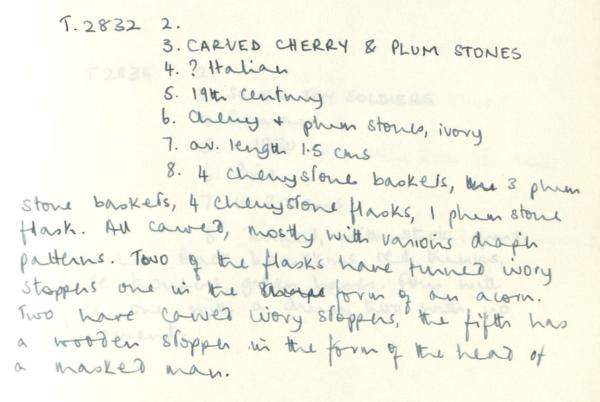 T.2832 2.
3. CARVED CHERRY & PLUM STONES
4. ? Italian
5. 19th Century
6. Cherry + plum stones, ivory
7. av. length 1.5 cms
8. 4 cherrystone baskets, 3 plum
stone baskets, 4 cherrystone flasks, 1 plum stone
flask. All carved, mostly with various diaph
patterns. Two of the flasks have turned ivory
stoppers one in the form of an acorn.
Two have carved ivory stoppers, the fifth has
a wooden stopper in the form of the head of
a masked man.